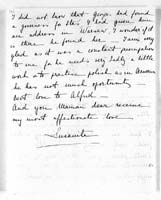 I did not know that George had found
a governess for Stas. I had given him
an address in Warsaw, I wonder if it
is there he found her — I am very
glad as it was a constant preoccupation
to me for he needs very badly a little
wish to practise polish as in
he has not much opportunity —
Best love to Alfred —
And you dear receive
my most affectionate love —